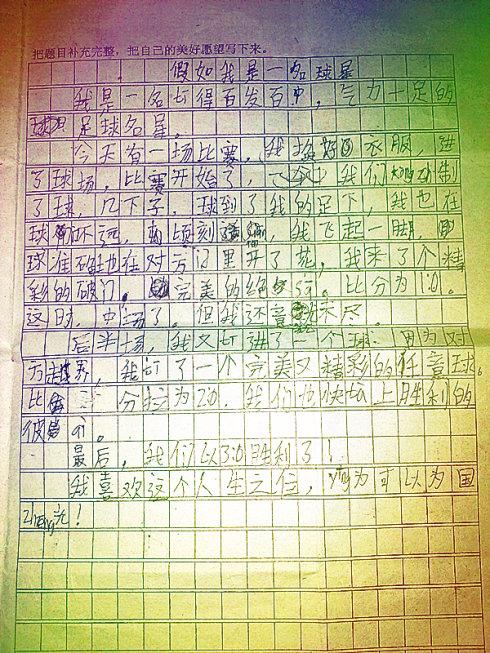 把题目补充完整，把自己的美好愿望写下来。
假如我是一名球星
我是一名打得百发百中，气力十足的
足球名星。
今天有一场比赛，我换好衣服，进
了球场，比赛开始了，我们控制
了球，几下子，球到了我的足下，我也在
球门不远，顷刻，我飞起一脚
球准确地在对方门里开了花，我来了个精
彩的破门。完美的绝。比分为1:0。
这时，中场了。但我还意犹未尽。
后半场，我又打进了一个球：因为对
方越界，我打了一个完美又精彩的任意球。
比分拉为2:0，我们也快切上胜利的
彼岸了。
最后，我们以3:0胜利了！
我喜欢这个人生之位，yīng为可以为国
zhēng光！